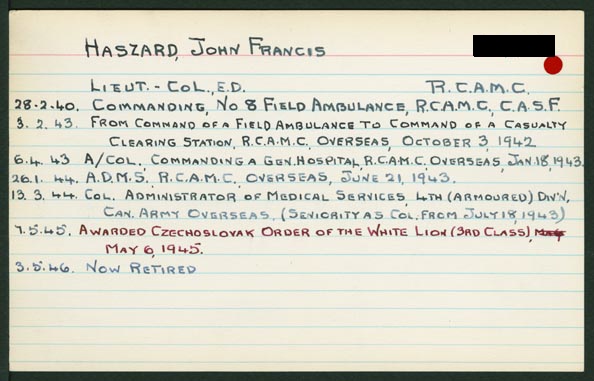 HASZARD, JOHN FRANCIS
LIEUT.-COL., E.D. R.C.A.M.C.
28.2.40. COMMANDING, NO 8 FIELD AMBULANCE, R.C.A.M.C., C.A.S.F.
3.2.43. FROM COMMAND OF A FIELD AMBULANCE TO COMMAND OF A CASUALTY
CLEARING STATION, R.C.A.M.C. OVERSEAS, OCTOBER 3, 1942
6.4.43 A/COL. COMMANDING A GEN. HOSPITAL, R.C.A.M.C. OVERSEAS, JAN. 18, 1943.
26.1.44. A.D.M.S. R.C.A.M.C. OVERSEAS, JUNE 21, 1943.
13.3.44. COL. ADMINISTRATOR OF MEDICAL SERVICES, 4TH (ARMOURED) DIV'N,
CAN. ARMY OVERSEAS. (SENIORITY AS COL. FROM JULY 18, 1943)
7.5.45. AWARDED CZECHOSLOVAK ORDER OF THE WHITE LION (3RD CLASS),
MAY 6, 1945.
3.5.46. NOW RETIRED